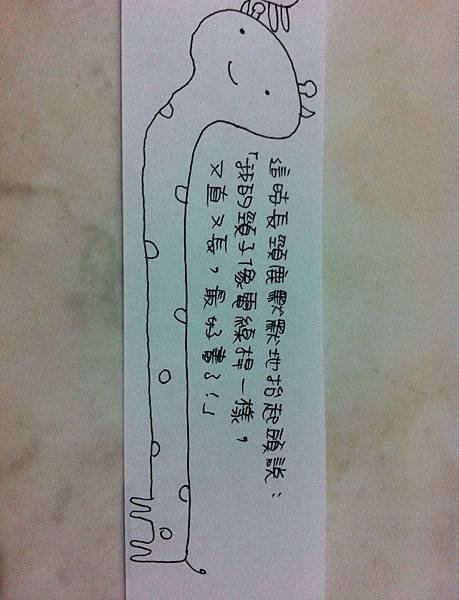 這時長頸鹿默默地抬起頭說：
「我的頸子像電線桿一樣，
又直又長，最好畫了！」